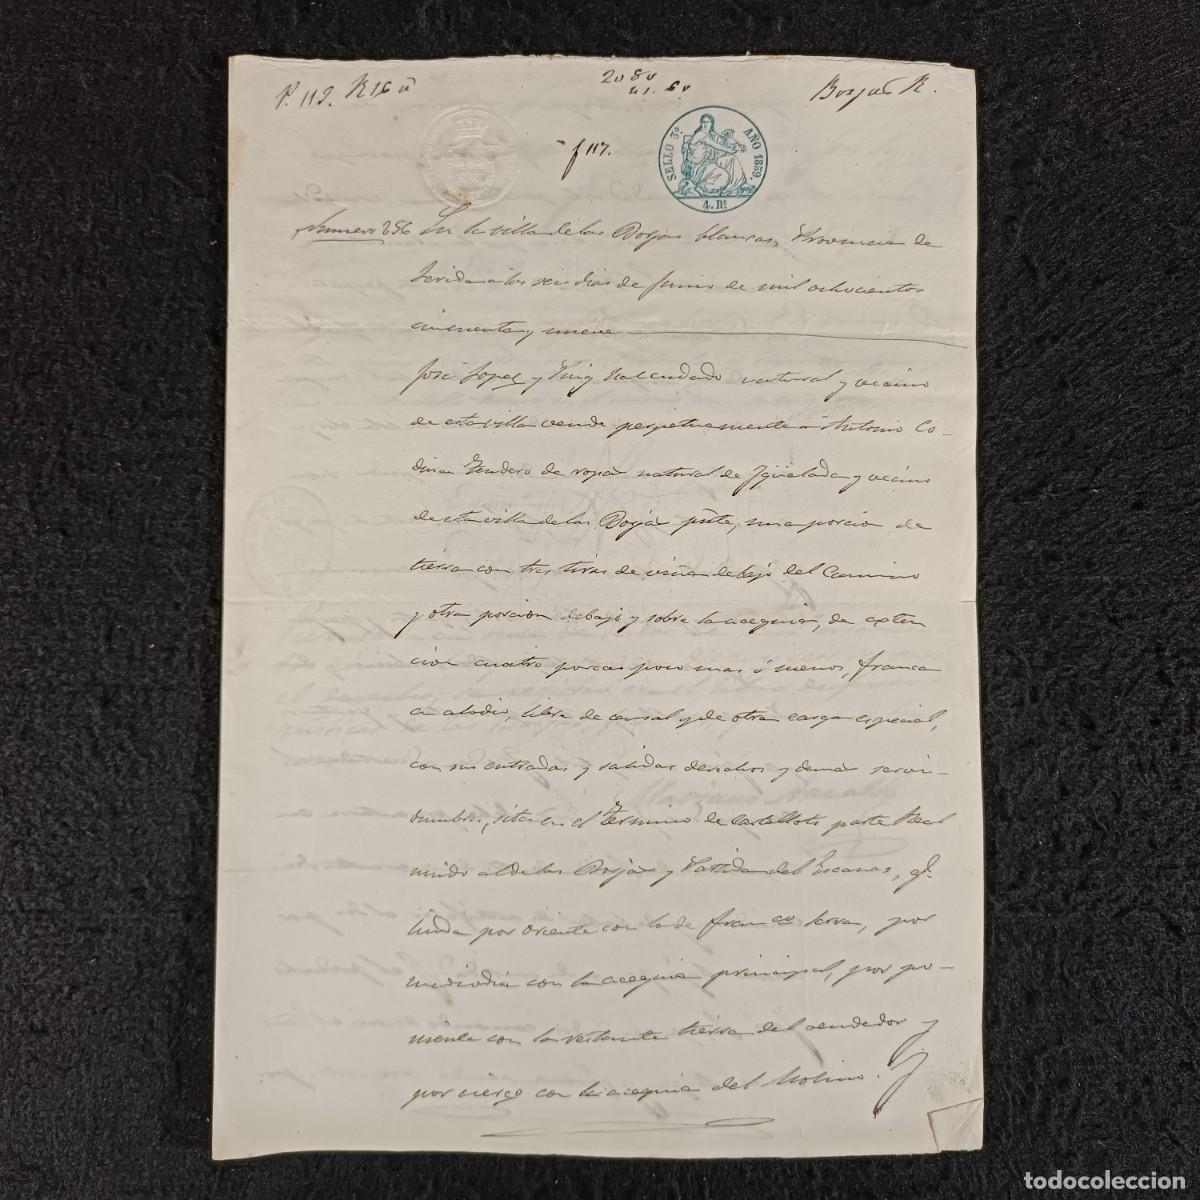 P. 112. R 16
20 80
41. 60
Borjas R.
f 117.
SELLO 3º AÑO 1859.
4. Rs
Numero 256 En la villa de las Borjas blancas, Provincia de
Lerida a los seis dias de Junio de mil ochocientos
cincuenta y nueve
José Lopez y Puig Hacendado natural y vecino
de esta villa vende perpetuamente a Antonio Co-
dina tendero de ropas natural de Igüalada y vecino
de esta villa de las Borjas pnte, una porcion de
tierra con tres tiras de viña debajo del Camino
y otra porcion debajo y sobre la acequia, de exten
cion cuatro porcas poco mas ó menos, franca
en alodio, libre de censal y de otra carga especial,
con sus entradas y salidas derechos y demas servi-
dumbres, sita en el termino de Castellots parte Reu
nido al de las Borjas y Partida del Escanas, q.
linda por oriente con lo de Franco Serra, por
mediodia con la acequia principal, por po-
niente con la restante tierra del vendedor y
por cierzo con la acequia del Molino.
todocoleccion